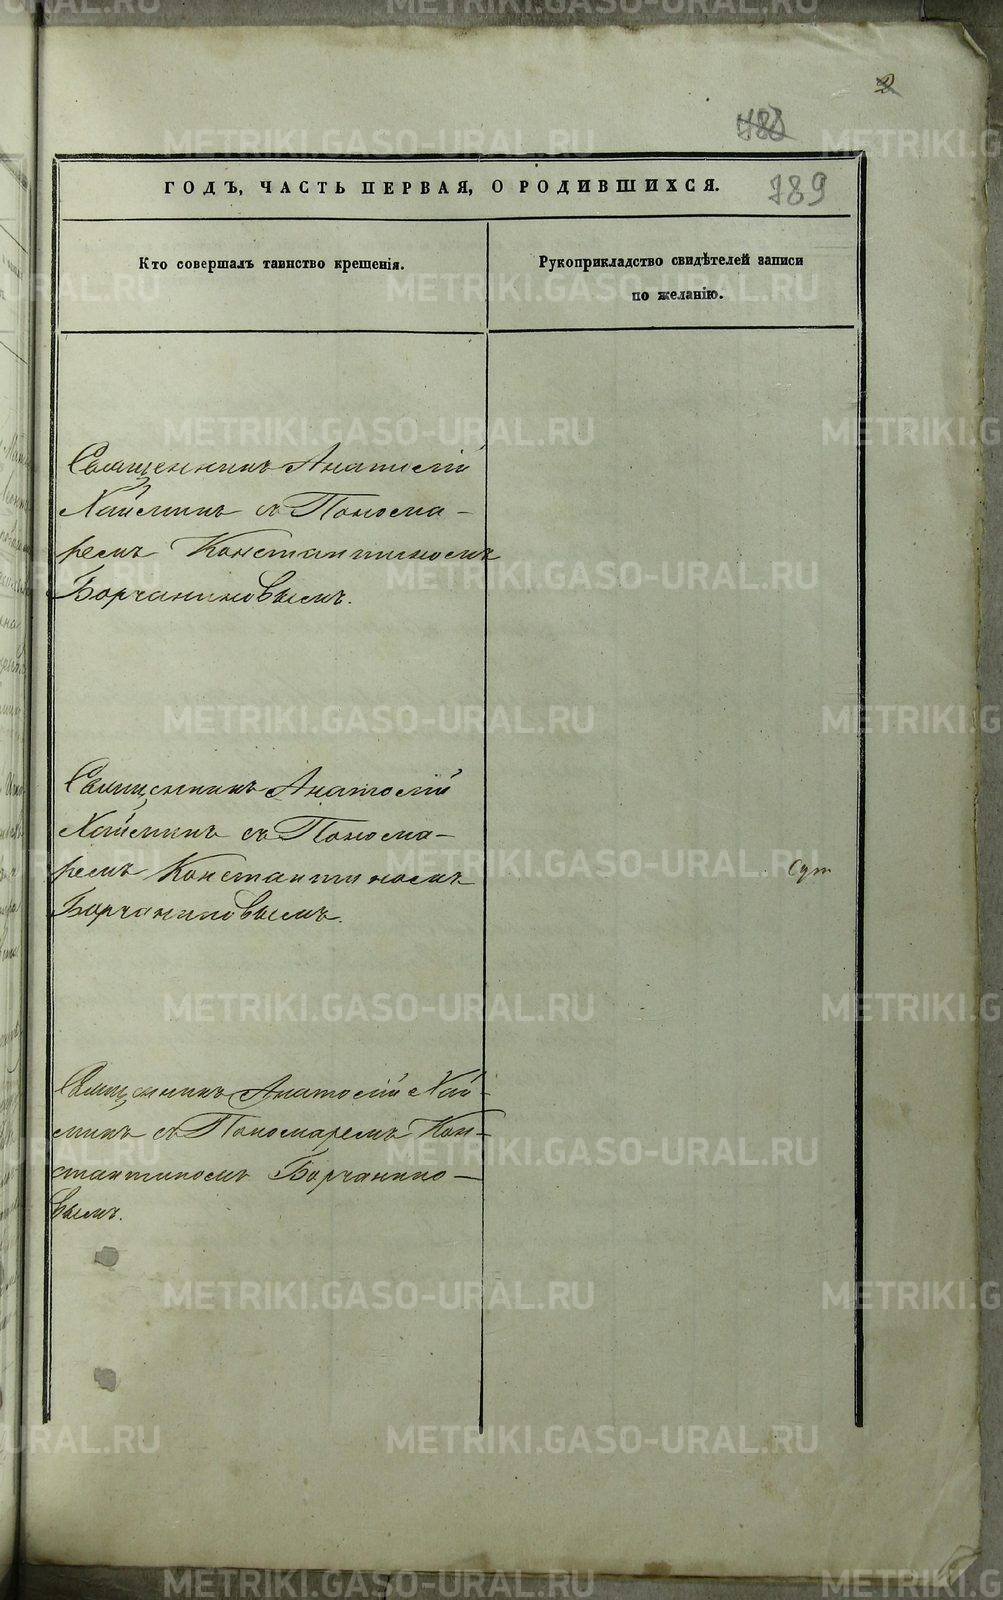 2
488
789
ГОДЪ, ЧАСТЬ ПЕРВАЯ, О РОДИВШИХСЯ.
Кто совершалъ таинство крещенія.
Рукоприкладство свидѣтелей записи
по желанію.
Священникъ Анатолій
Хаймин съ Понома-
ремъ Константиномъ
Борчаниновымъ.
Священникъ Анатолій
Хайминъ съ Понома-
ремъ Константиномъ
Борчаниновымъ.
Священникъ Анатолій Хай-
минъ съ Пономаремъ Кон-
стантиномъ Борчанино-
вымъ.
METRIKI.GASO-URAL.RU